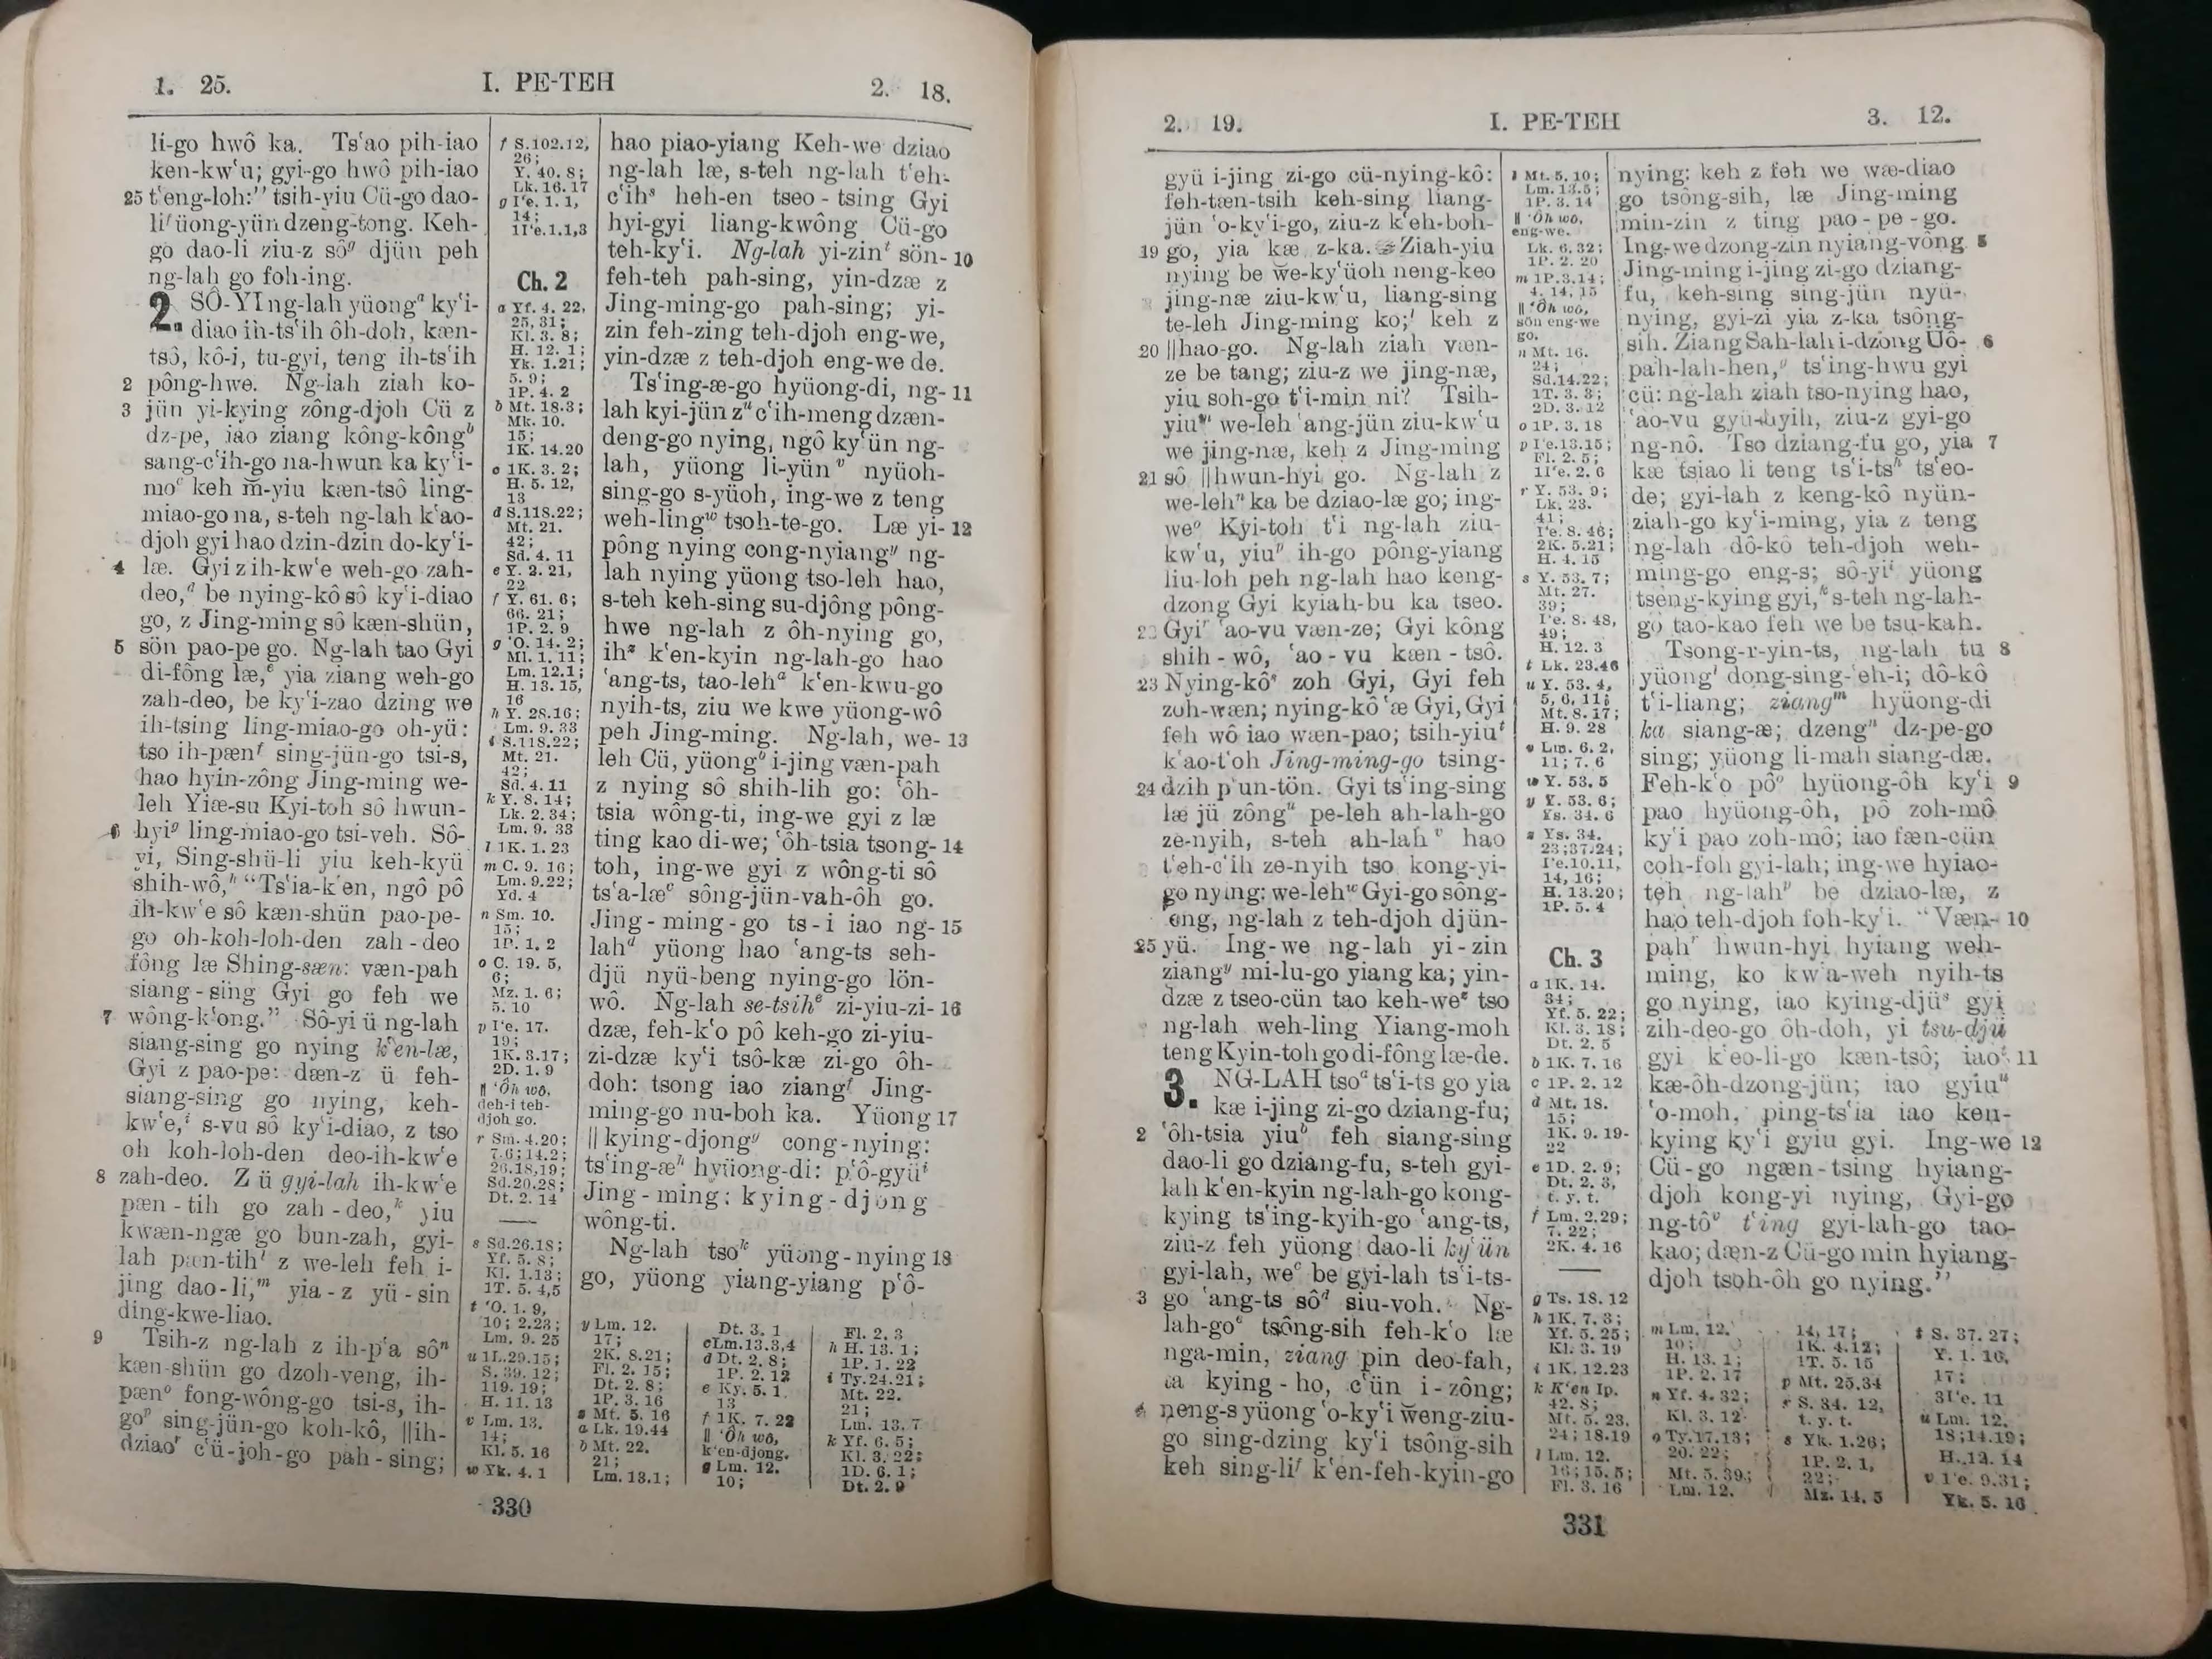 1. 25. I. PE-TEH 2. 18.
li-go hwô ka. Ts‘ao pih-iao
ken-kw‘u; gyi-go hwô pih-iao
25 t‘eng-loh:” tsih-yiu Cü-go dao-
li f üong-yün dzeng-tong. Keh-
go dao-li ziu-z sô g djün peh
ng-lah go foh-ing.
2. SÔ-YI ng-lah yüong a ky‘i-
diao ih-ts‘ih ôh-doh, kæn-
tsô, kô-i, tu-gyi, teng ih-ts‘ih
2 pông-hwe. Ng-lah ziah ko-
3 jün yi-kying zông-djoh Cü z
dz-pe, iao ziang kông-kông b
sang-c‘ih-go na-hwun ka ky‘i-
mo c keh m̄-yiu kæn-tsô ling-
miao-go na, s-teh ng-lah k‘ao-
djoh gyi hao dzin-dzin do-ky‘i-
4 læ. Gyi z ih-kw‘e weh-go zah-
deo, d be nying-kô sô ky‘i-diao
go, z Jing-ming sô kæn-shün,
5 sön pao-pe go. Ng-lah tao Gyi
di-fông læ, e yia ziang weh-go
zah-deo, be ky‘i-zao dzing we
ih-tsing ling-miao-go oh-yü:
tso ih-pæn f sing-jün-go tsi-s,
hao hyin-zông Jing-ming we-
leh Yiæ-su Kyi-toh sô hwun-
6 hyi g ling-miao-go tsi-veh. Sô-
yi, Sing-shü-li yiu keh-kyü
shih-wô, h “Ts‘ia-k‘en, ngô pô
ih-kw‘e sô kæn-shün pao-pe-
go oh-koh-loh-den zah-deo
fông læ Shing-sæn: væn-pah
siang-sing Gyi go feh we
7 wông-k‘ong.” Sô-yi ü ng-lah
siang-sing go nying k‘en-læ,
Gyi z pao-pe: dæn-z ü feh-
siang-sing go nying, keh-
kw‘e, i s-vu sô ky‘i-diao, z tso
oh koh-loh-den deo-ih-kw‘e
8 zah-deo. Z ü gyi-lah ih-kw‘e
pæn-tih go zah-deo, k yiu
kwæn-ngæ go bun-zah, gyi-
lah pæn-tih l z we-leh feh i-
jing dao-li, m yia-z yü-sin
ding-kwe-liao.
9 Tsih-z ng-lah z ih-p‘a sô n
kæn-shün go dzoh-veng, ih-
pæn o fong-wông-go tsi-s, ih-
go p sing-jün-go koh-kô, ||ih-
dziao r c‘ü-joh-go pah-sing;
f S.102.12,
26;
Y. 40. 8;
Lk. 16. 17
g I‘e. 1. 1,
14;
1I‘e.1.1,3
Ch. 2
a Yf. 4. 22,
25, 31;
Kl. 3. 8;
H. 12. 1;
Yk. 1.21;
5. 9;
1P. 4. 2
b Mt. 18.3;
Mk. 10.
15;
1K. 14.20
c 1K. 3. 2;
H. 5. 12,
13
d S.118.22;
Mt. 21.
42;
Sd. 4. 11
e Y. 2. 21,
22
f Y. 61. 6;
66. 21;
1P. 2. 9
g ‘O. 14. 2;
Ml. 1. 11;
Lm. 12.1;
H. 13. 15,
16
h Y. 28.16;
Lm. 9. 33
i S.118.22;
Mt. 21.
42;
Sd. 4. 11
k Y. 8. 14;
Lk. 2. 34;
Lm. 9. 33
l 1K. 1. 23
m C. 9. 16;
Lm. 9.22;
Yd. 4
n Sm. 10.
15;
1P. 1. 2
o C. 19. 5,
6;
Mz. 1. 6;
5. 10
p I‘e. 17.
19;
1K. 3.17;
2D. 1. 9
|| ‘Ôh wô,
deh-i teh-
djoh go.
r Sm. 4.20;
7.6;14.2;
26.18,19;
Sd.20.28;
Dt. 2. 14
s Sd.26.18;
Yf. 5. 8;
Kl. 1.13;
1T. 5. 4,5
t ‘O. 1. 9,
10; 2.23;
Lm. 9. 25
u 1L.29.15;
S. 39. 12;
119. 19;
H. 11. 13
v Lm. 13.
14;
Kl. 5. 16
w Yk. 4. 1
hao piao-yiang Keh-we dziao
ng-lah læ, s-teh ng-lah t‘eh-
c‘ih s heh-en tseo-tsing Gyi
hyi-gyi liang-kwông Cü-go
teh-ky‘i. Ng-lah yi-zin t sön- 10
feh-teh pah-sing, yin-dzæ z
Jing-ming-go pah-sing; yi-
zin feh-zing teh-djoh eng-we,
yin-dzæ z teh-djoh eng-we de.
Ts‘ing-æ-go hyüong-di, ng- 11
lah kyi-jün z u c‘ih-meng dzæn-
deng-go nying, ngô ky‘ün ng-
lah, yüong li-yün v nyüoh-
sing-go s-yüoh, ing-we z teng
weh-ling w tsoh-te-go. Læ yi- 12
pông nying cong-nyiang y ng-
lah nying yüong tso-leh hao,
s-teh keh-sing su-djông pông-
hwe ng-lah z ôh-nying go,
ih z k‘en-kyin ng-lah-go hao
‘ang-ts, tao-leh a k‘en-kwu-go
nyih-ts, ziu we kwe yüong-wô
peh Jing-ming. Ng-lah, we- 13
leh Cü, yüong b i-jing væn-pah
z nying sô shih-lih go: ‘ôh-
tsia wông-ti, ing-we gyi z læ
ting kao di-we; ‘ôh-tsia tsong- 14
toh, ing-we gyi z wông-ti sô
ts‘a-læ c sông-jün-vah-ôh go.
Jing-ming-go ts-i iao ng- 15
lah d yüong hao ‘ang-ts seh-
djü nyü-beng nying-go lön-
wô. Ng-lah se-tsih e zi-yiu-zi- 16
dzæ, feh-k‘o pô keh-go zi-yiu-
zi-dzæ ky‘i tsô-kæ zi-go ôh-
doh: tsong iao ziang f Jing-
ming-go nu-boh ka. Yüong 17
|| kying-djong g cong-nying:
ts‘ing-æ h hyüong-di: p‘ô-gyü i
Jing-ming: kying-djong
wông-ti.
Ng-lah tso k yüong-nying 18
go, yüong yiang-yiang p‘ô-
y Lm. 12.
17;
2K. 8.21;
Fl. 2. 15;
Dt. 2. 8;
1P. 3. 16
z Mt. 5. 16
a Lk. 19.44
b Mt. 22.
21;
Lm. 13.1;
Dt. 3. 1
c Lm.13.3,4
d Dt. 2. 8;
1P. 2. 12
e Ky. 5. 1,
13
f 1K. 7. 22
|| ‘Ôh wô,
k‘en-djong.
g Lm. 12.
10;
Fl. 2. 3
h H. 13. 1;
1P. 1. 22
i Ty.24.21;
Mt. 22.
21;
Lm. 13. 7
k Yf. 6. 5;
Kl. 3. 22;
1D. 6. 1;
Dt. 2. 9
330
2. 19. I. PE-TEH 3. 12.
gyü i-jing zi-go cü-nying-kô:
feh-tæn-tsih keh-sing liang-
jün ‘o-ky‘i-go, ziu-z k‘eh-boh-
19 go, yia kæ z-ka. Ziah-yiu
nying be we-ky‘üoh neng-keo
jing-næ ziu-kw‘u, liang-sing
te-leh Jing-ming ko; l keh z
20 ||hao-go. Ng-lah ziah væn-
ze be tang; ziu-z we jing-næ,
yiu soh-go t‘i-min ni? Tsih-
yiu m we-leh ‘ang-jün ziu-kw‘u
we jing-næ, keh z Jing-ming
21 sô ||hwun-hyi go. Ng-lah z
we-leh n ka be dziao-læ go; ing-
we o Kyi-toh t‘i ng-lah ziu-
kw‘u, yiu p ih-go pông-yiang
liu-loh peh ng-lah hao keng-
dzong Gyi kyiah-bu ka tseo.
22 Gyi r ‘ao-vu væn-ze; Gyi kông
shih-wô, ‘ao-vu kæn-tsô.
23 Nying-kô s zoh Gyi, Gyi feh
zoh-wæn; nying-kô ‘æ Gyi, Gyi
feh wô iao wæn-pao; tsih-yiu t
k‘ao-t‘oh Jing-ming-go tsing-
24 dzih p‘un-tön. Gyi ts‘ing-sing
læ jü zông u pe-leh ah-lah-go
ze-nyih, s-teh ah-lah v hao
t‘eh-c‘ih ze-nyih tso kong-yi-
go nying: we-leh w Gyi-go sông-
‘eng, ng-lah z teh-djoh djün-
25 yü. Ing-we ng-lah yi-zin
ziang y mi-lu-go yiang ka; yin-
dzæ z tseo-cün tao keh-we z tso
ng-lah weh-ling Yiang-moh
teng Kyin-toh go di-fông læ-de.
3. NG-LAH tso a ts‘i-ts go yia
kæ i-jing zi-go dziang-fu;
2 ‘ôh-tsia yiu b feh siang-sing
dao-li go dziang-fu, s-teh gyi-
lah k‘en-kyin ng-lah-go kong-
kying ts‘ing-kyih-go ‘ang-ts,
ziu-z feh yüong dao-li ky‘ün
gyi-lah, we c be gyi-lah ts‘i-ts-
go ‘ang-ts sô d siu-voh. Ng-
3 lah-go e tsông-sih feh-k‘o læ
nga-min, ziang pin deo-fah,
ta kying-ho, c‘ün i-zông;
4 neng-s yüong ‘o-ky‘i weng-ziu-
go sing-dzing ky‘i tsông-sih
keh sing-li f k‘en-feh-kyin-go
l Mt. 5. 10;
Lm. 13.5;
1P. 3. 14
|| ‘Ôh wô,
eng-we.
Lk. 6. 32;
1P. 2. 20
m 1P.3.14;
4. 14, 15
|| ‘Ôh wô,
sön eng-we
go.
n Mt. 16.
24;
Sd.14.22;
1T. 3. 3;
2D. 3. 12
o 1P. 3. 18
p I‘e.13.15;
Fl. 2. 5;
1I‘e. 2. 6
r Y. 53. 9;
Lk. 23.
41;
I‘e. 8. 46;
2K. 5.21;
H. 4. 15
s Y. 53. 7;
Mt. 27.
39;
I‘e. 8. 48,
49;
H. 12. 3
t Lk. 23.46
u Y. 53. 4,
5, 6, 11;
Mt. 8. 17;
H. 9. 28
v Lm. 6. 2,
11; 7. 6
w Y. 53. 5
y Y. 53. 6;
Ys. 34. 6
z Ys. 34.
23;37.24;
I‘e.10.11,
14, 16;
H. 13.20;
1P. 5. 4
Ch. 3
a 1K. 14.
34;
Yf. 5. 22;
Kl. 3. 18;
Dt. 2. 5
b 1K. 7. 16
c 1P. 2. 12
d Mt. 18.
15;
1K. 9. 19-
22
e 1D. 2. 9;
Dt. 2. 3,
t. y. t.
f Lm. 2.29;
7. 22;
2K. 4. 16
g Ts. 18. 12
h 1K. 7. 3;
Yf. 5. 25;
Kl. 3. 19
i 1K. 12.23
k K‘en Ip.
42. 8;
Mt. 5. 23,
24; 18.19
l Lm. 12.
16; 15. 5;
Fl. 3. 16
nying: keh z feh we wæ-diao
go tsông-sih, læ Jing-ming
min-zin z ting pao-pe-go.
Ing-we dzong-zin nyiang-vông 5
Jing-ming i-jing zi-go dziang-
fu, keh-sing sing-jün nyü-
nying, gyi-zi yia z-ka tsông-
sih. Ziang Sah-lah i-dzong Üô- 6
pah-lah-hen, g ts‘ing-hwu gyi
cü: ng-lah ziah tso-nying hao,
‘ao-vu gyü-hyih, ziu-z gyi-go
ng-nô. Tso dziang-fu go, yia 7
kæ tsiao li teng ts‘i-ts h ts‘eo-
de; gyi-lah z keng-kô nyün-
ziah-go ky‘i-ming, yia z teng
ng-lah dô-kô teh-djoh weh-
ming-go eng-s; sô-yi i yüong
tseng-kying gyi, k s-teh ng-lah-
go tao-kao feh we be tsu-kah.
Tsong-r-yin-ts, ng-lah tu 8
yüong l dong-sing-‘eh-i; dô-kô
t‘i-liang; ziang m hyüong-di
ka siang-æ; dzeng n dz-pe-go
sing; yüong li-mah siang-dæ.
Feh-k‘o pô o hyüong-ôh ky‘i 9
pao hyüong-ôh, pô zoh-mô
ky‘i pao zoh-mô; iao fæn-cün
coh-foh gyi-lah; ing-we hyiao-
teh ng-lah p be dziao-læ, z
hao teh-djoh foh-ky‘i. “Væn- 10
pah r hwun-hyi hyiang weh-
ming, ko kw‘a-weh nyih-ts
go nying, iao kying-djü s gyi
zih-deo-go ôh-doh, yi tsu-djü
gyi k‘eo-li-go kæn-tsô; iao t 11
kæ-ôh-dzong-jün; iao gyiu u
‘o-moh, ping-ts‘ia iao ken-
kying ky‘i gyiu gyi. Ing-we 12
Cü-go ngæn-tsing hyiang-
djoh kong-yi nying, Gyi-go
ng-tô v t‘ing gyi-lah-go tao-
kao; dæn-z Cü-go min hyiang-
djoh tsoh-ôh go nying.”
m Lm. 12.
10;
H. 13. 1;
1P. 2. 17
n Yf. 4. 32;
Kl. 3. 12
o Ty.17.13;
20. 22;
Mt. 5. 39;
Lm. 12.
14, 17;
1K. 4.12;
1T. 5. 15
p Mt. 25.34
r S. 34. 12,
t. y. t.
s Yk. 1.26;
1P. 2. 1,
22;
Mz. 14. 5
t S. 37. 27;
Y. 1. 16,
17;
3I‘e. 11
u Lm. 12.
18;14.19;
H. 12. 14
v I‘e. 9.31;
Yk. 5. 16
331